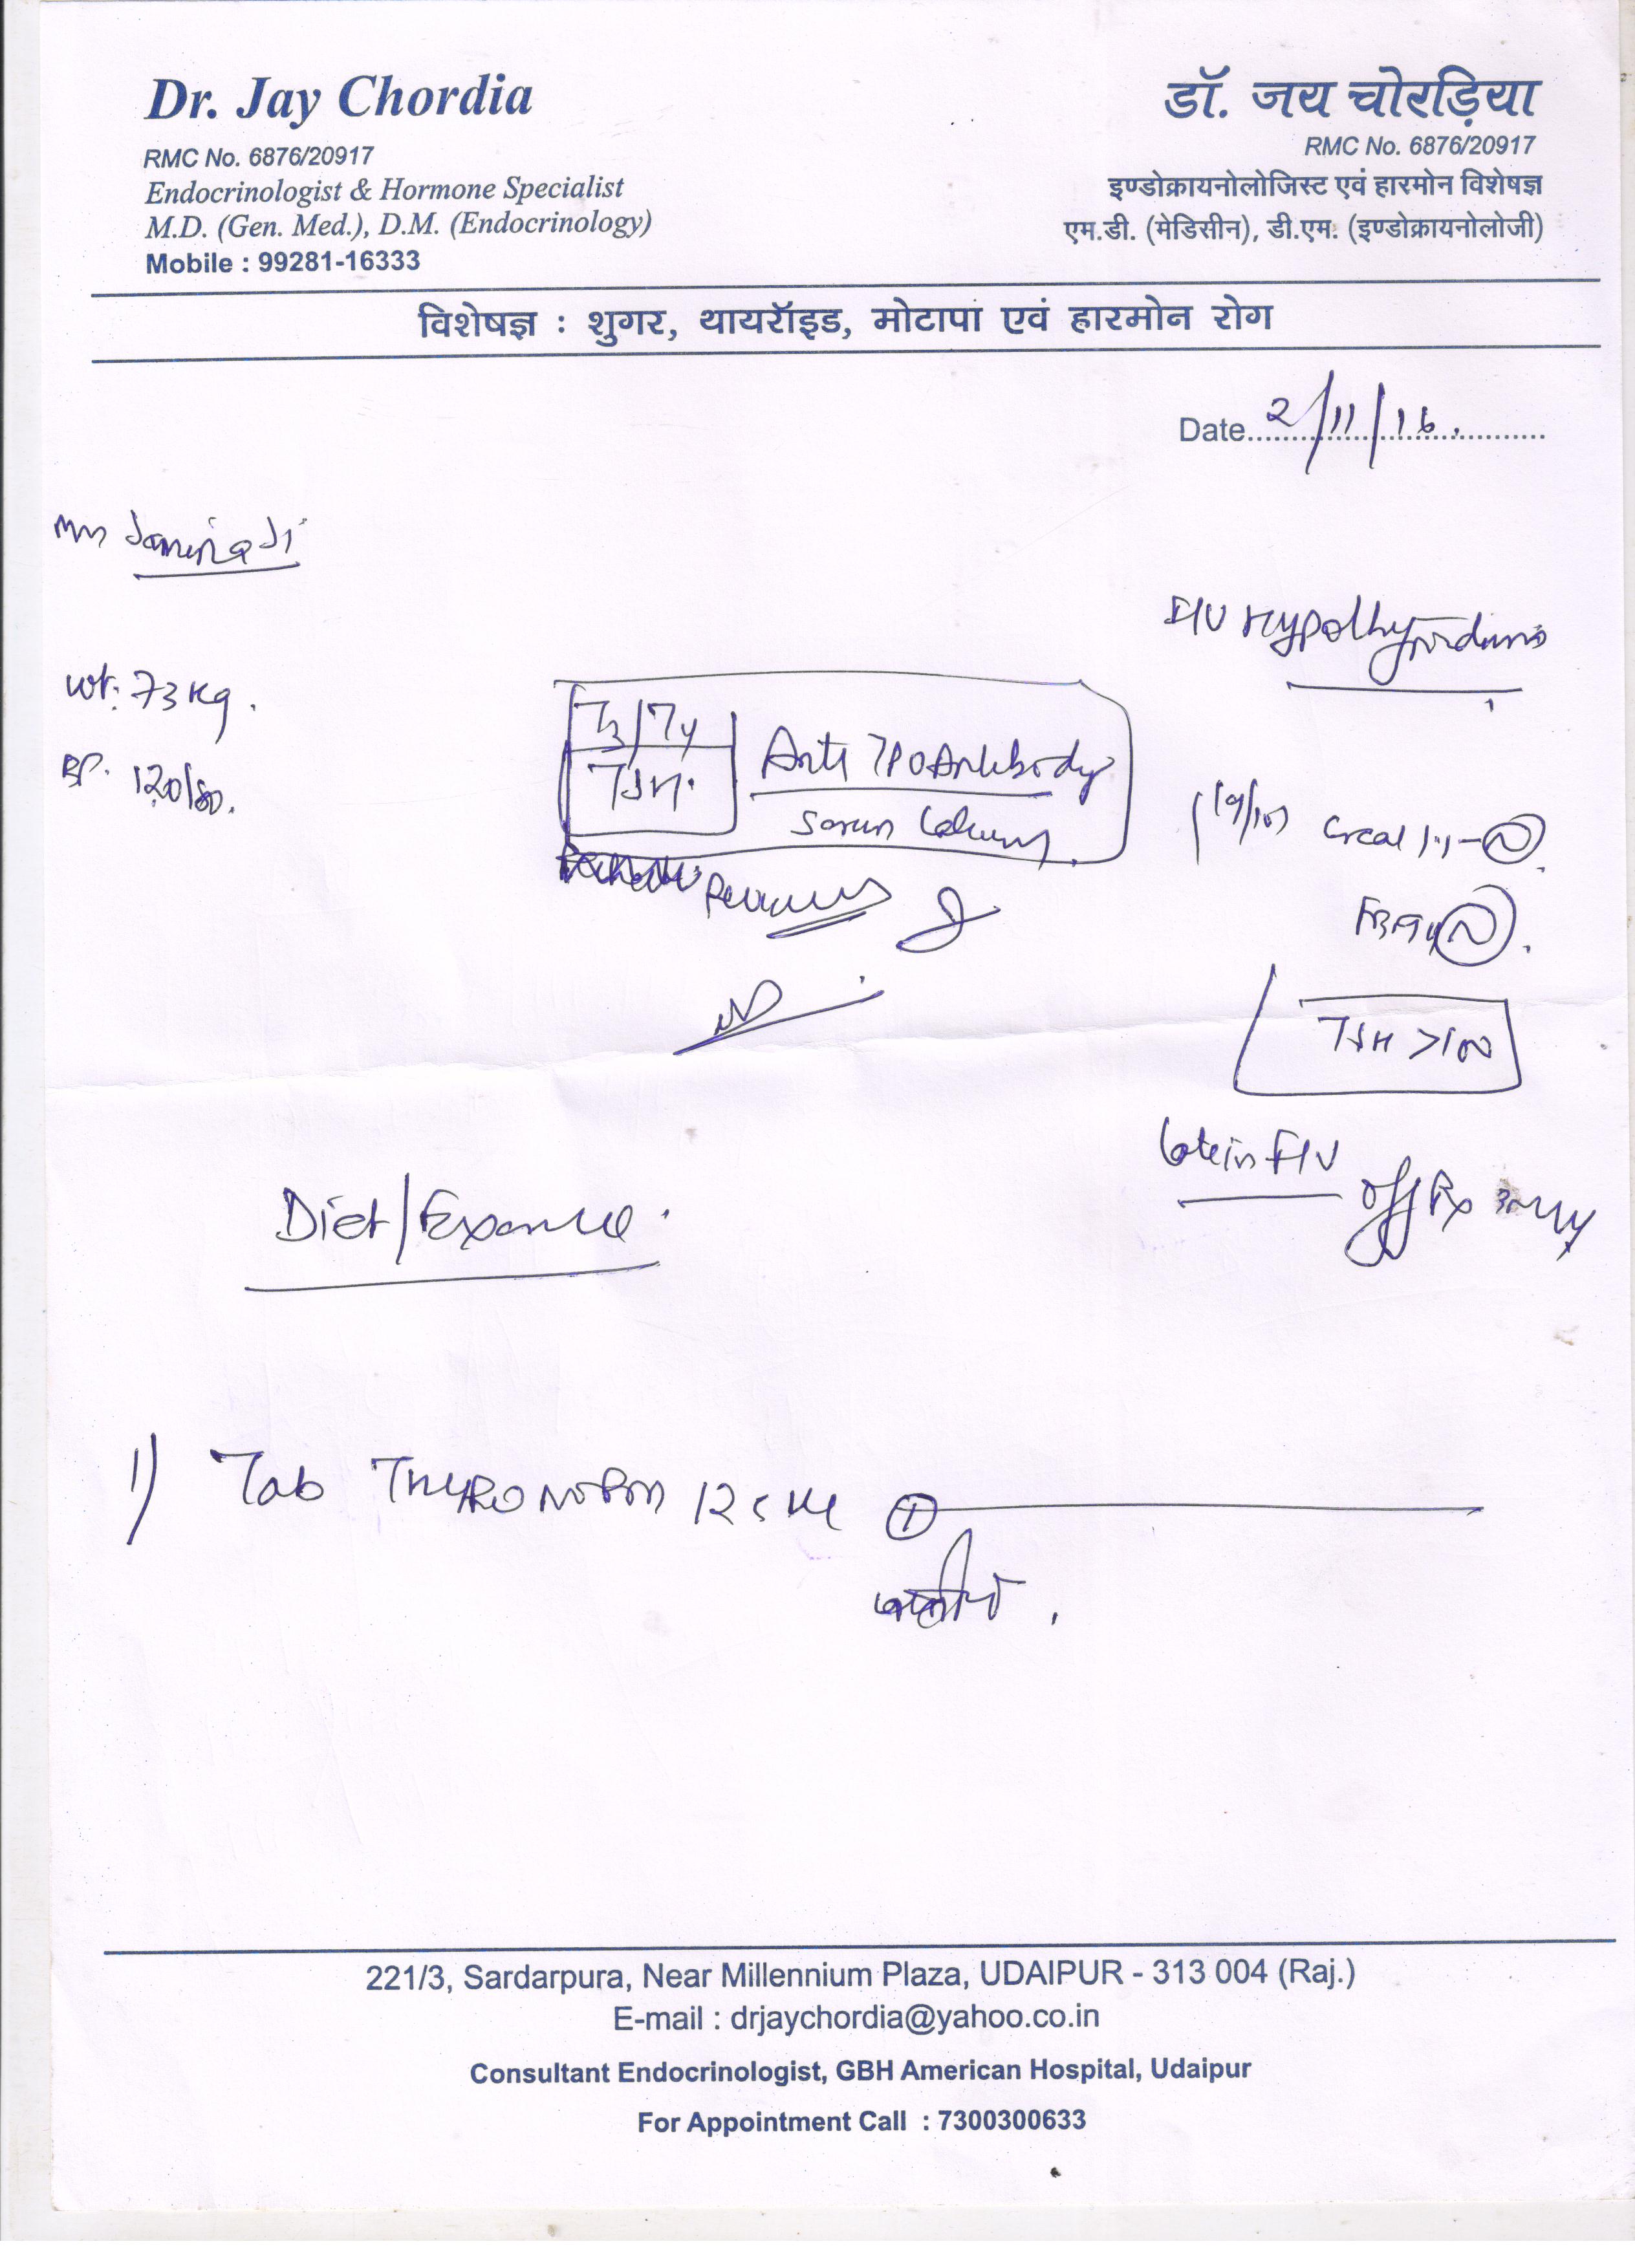 Dr. Jay Chordia
RMC No. 6876/20917
Endocrinologist & Hormone Specialist
M.D. (Gen. Med.), D.M. (Endocrinology)
Mobile : 99281-16333
डॉ. जय चोरड़िया
RMC No. 6876/20917
इण्डोक्रायनोलोजिस्ट एवं हारमोन विशेषज्ञ
एम.डी. (मेडिसीन), डी.एम. (इण्डोक्रायनोलोजी)
विशेषज्ञ : शुगर, थायरॉइड, मोटापा एवं हारमोन रोग
Date 2/11/16.
Wt: 73 Kg.
BP. 120/80.
T3/T4
TSH.
Anti TPO Antibody
F/U Hypothyroidism
Creat 1.1 - N
TSH >100
Late in F/U
off Rx
Diet/Exercise.
1) Tab THYRONORM 125 1
221/3, Sardarpura, Near Millennium Plaza, UDAIPUR - 313 004 (Raj.)
E-mail : drjaychordia@yahoo.co.in
Consultant Endocrinologist, GBH American Hospital, Udaipur
For Appointment Call : 7300300633